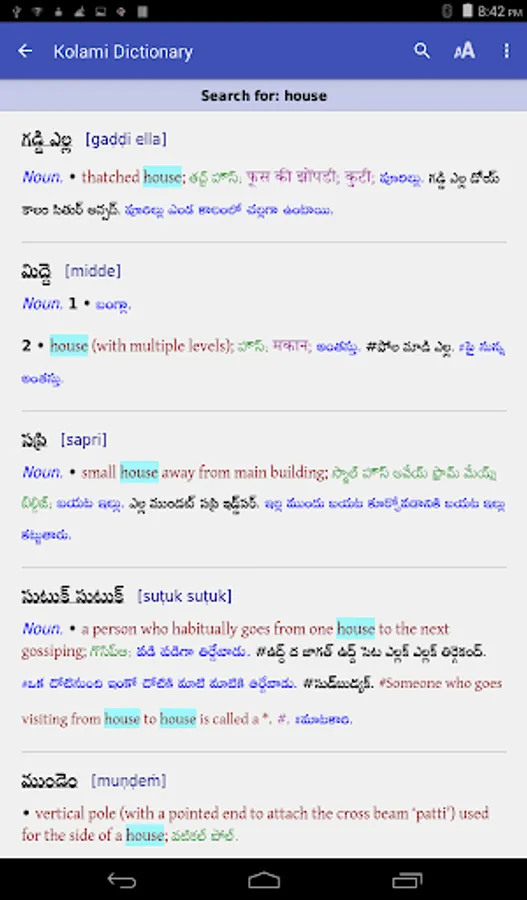 8:42 PM
Kolami Dictionary
Search for: house
గడ్డి ఎల్ల [gaḍḍi ella]
Noun. • thatched house; తచ్డ్ హౌస్; फूस की झोंपडी; कुटी; పూరిల్లు. గడ్డి ఎల్ల
కాలం సితుర్ అన్సద్. పూరిల్లు ఎండ కాలంలో చల్లగా ఉంటాయి.
మిద్దె [midde]
Noun. 1 • బంగ్లా.
2 • house (with multiple levels); హౌస్; मकान; అంతస్తు. #పోల మాడి ఎల్ల. #పై నున్న
అంతస్తు.
సప్రి [sapri]
Noun. • small house away from main building; స్మాల్ హౌస్ అవేయ్ ఫ్రామ్ మేయ్న్
బిల్డిఙ్; బయట ఇల్లు. ఎల్ల ముందట్ సప్రి ఇడ్డ్‌సర్. ఇల్ల ముందు బయట కూర్చోవడానికి బయట ఇల్లు
కట్టుతారు.
సుటుక్ సుటుక్ [suṭuk suṭuk]
Noun. • a person who habitually goes from one house to the next
gossiping; గొసిప్ఇఙ; పడి పడిగా తిర్గేవాడు. #ఉద్ద్ ద జాగత్ ఉద్ద్ సెట ఎల్లక్ ఎల్లక్ తిర్గెకంద్.
#ఒక చోటినుంచి ఇంకో చోటికి మాటి మాటికి తిర్గేవాడు. #సుడ్‌బుడ్యక్. #Someone who goes
visiting from house to house is called a *. #. #మాటకారి.
ముండెం [muṇḍeṁ]
• vertical pole (with a pointed end to attach the cross beam ‘patti’) used
for the side of a house; వటికల్ పోల్.